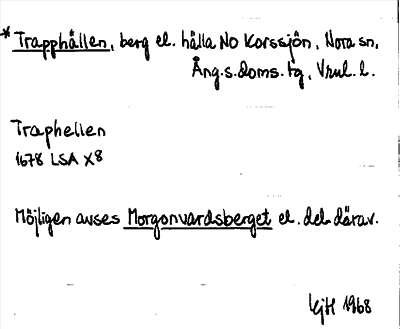 * Trapphällen, berg el. hälla NO Korssjön, Nora sn,
Ång.s.doms.tg, Vrml. l.
Traphellen
1678 LSA X8
Möjligen avses Morgonvardsberget el. del därav.
1968